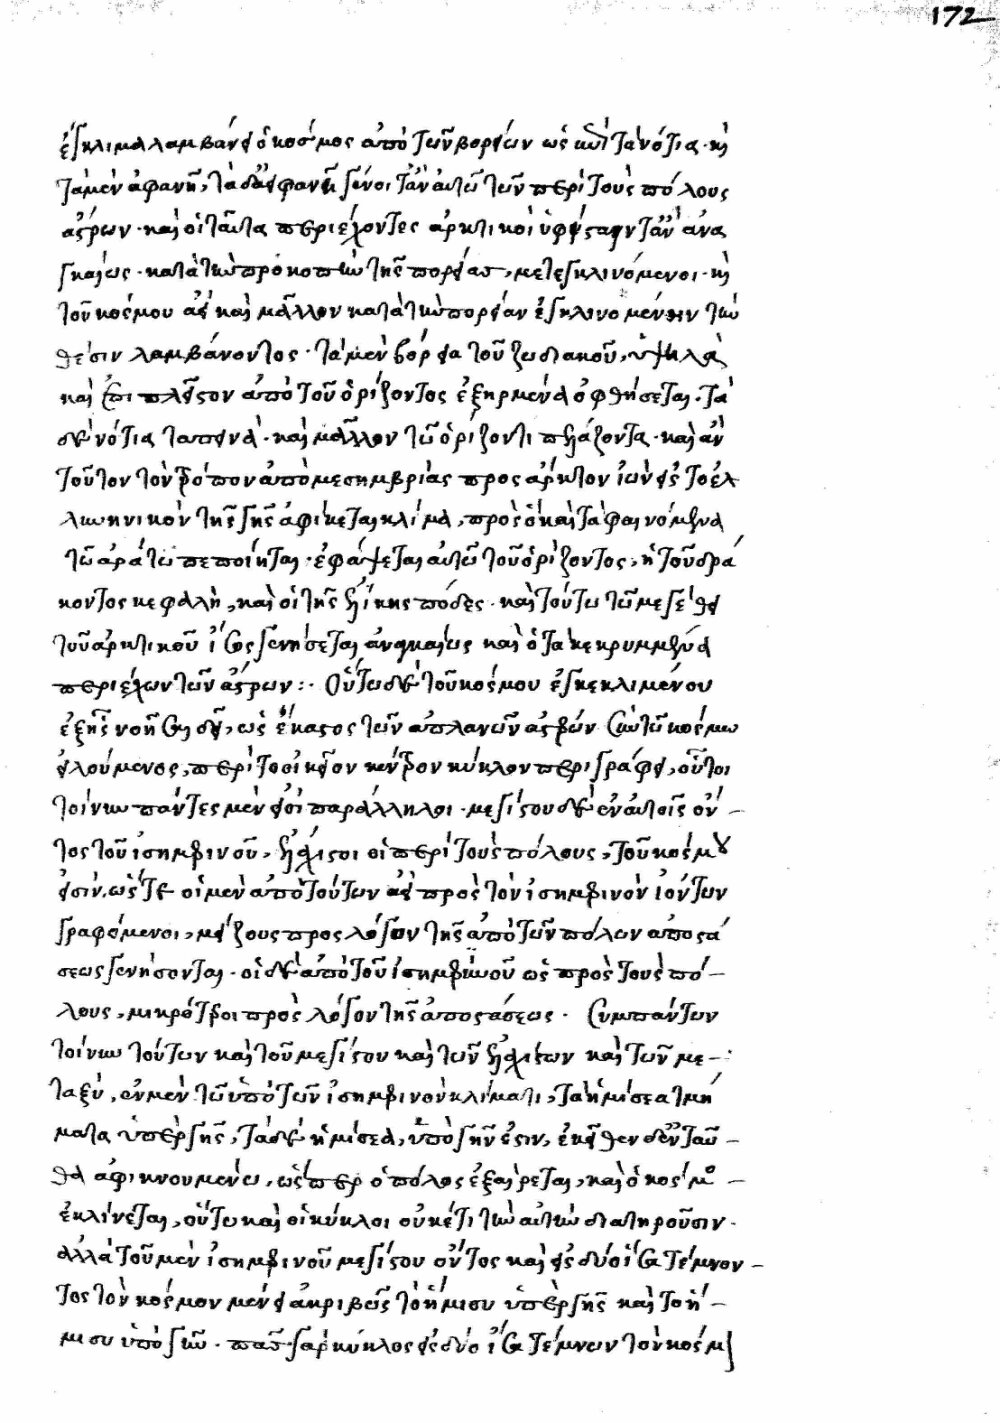 172
ἔγκλιμα λαμβάνει ὁ κόσμος ἀπὸ τῶν βορείων ὡς ἐπὶ τὰ νότια· καὶ
τὰ μὲν ἀφανῆ, τὰ δ' ἀειφανῆ γένοιτ' ἂν αὐτῶ τῶν περὶ τοὺς πόλους
ἄστρων· καὶ οἱ ταῦτα περιέχοντες ἀρκτικοὶ ὑφίσταιντ' ἂν ἀνα
γκαίως· κατὰ τὴν προκοπὴν τῆς πορείας, μετεγκλινόμενοι· καὶ
τοῦ κόσμου ἀεὶ καὶ μᾶλλον κατὰ τὴν πορείαν ἐγκλινομένην τὴν
θέσιν λαμβάνοντος· τὰ μὲν βόρεια τοῦ ζωδιακοῦ, ὑψηλὰ
καὶ ἐπιπλεῖστον ἀπὸ τοῦ ὁρίζοντος ἐξηρμένα ὀφθήσεται· τὰ
δὲ νότια ταπεινὰ· καὶ μᾶλλον τῶ ὁρίζοντι πλάζοντα· καὶ ἂν
τοῦτον τὸν τρόπον ἀπὸ μεσημβρίας πρὸς ἄρκτον ἰὼν εἰς τὸ ἑλ
λωηνικὸν τῆς γῆς ἀφίκεται κλίμα, πρὸς ὃ καὶ τὰ φαινόμενα
τῶ ἀράτω πεποίηται· ἐφάψεται αὐτῶ τοῦ ὁρίζοντος, ἡ τοῦ δρά
κοντος κεφαλὴ, καὶ οἱ τῆς ἑλίκης πόδες· καὶ τούτω τῶ μεγέθει
τοῦ ἀρκτικοῦ ἴσος γενήσεται ἀναγκαίως καὶ ὁ τὰ κεκρυμμένα
περιέχων τῶν ἄστρων:· Οὕτω δὲ τοῦ κόσμου ἐγκεκλιμένου
ἑξῆς νοῆσαι δεῖ, ὡς ἕκαστος τῶν ἀπλανῶν ἀστέρων σὺν τῶ κόσμω
εἰλούμενος, περὶ τὸ οἰκεῖον κέντρον κύκλον περιγράφει, οὗτοι
τοίνυν πάντες μὲν εἰσὶ παράλληλοι· μεγίστου δὲ ἐν αὐτοῖς ὄν-
τος τοῦ ἰσημερινοῦ, ἐλάχιστοι οἱ περὶ τοὺς πόλους, τοῦ κόσμου
εἰσὶν, ὥστε οἱ μὲν ἀπὸ τούτων ἀεὶ πρὸς τὸν ἰσημερινὸν ἰόντων
γραφόμενοι, μείζους πρὸς λόγον τῆς ἀπὸ τῶν πόλων ἀποστά
σεως γενήσονται· οἱ δὲ ἀπὸ τοῦ ἰσημερινοῦ ὡς πρὸς τοὺς πό-
λους, μικρότεροι πρὸς λόγον τῆς ἀποστάσεως· Συμπάντων
τοίνυν τούτων καὶ τοῦ μεγίστου καὶ τῶν ἐλαχίστων καὶ τῶν με-
ταξὺ, ἐν μὲν τῶ ὑπὸ τῶν ἰσημερινὸν κλίματι, τὰ ἡμίσεα τμή
ματα ὑπὲρ γῆς, τὰ δὲ ἡμίσεα, ὑπὸ γῆν ἐστιν, ἐκεῖθεν δ' ἐνταῦ-
θα ἀφικνουμένω, ὥσπερ ὁ πόλος ἐξαίρεται, καὶ ὁ κόσμος
ἐκλίνεται, οὕτω καὶ οἱ κύκλοι οὐκέτι τὴν αὐτὴν διατηροῦσιν·
ἀλλὰ τοῦ μὲν ἰσημερινοῦ μεγίστου ὄντος καὶ εἰς δύο ἴσα τέμνον-
τος τὸν κόσμον μένει ἀκριβῶς τὸ ἥμισυ ὑπὲρ γῆς καὶ τὸ ἥ-
μισυ ὑπὸ γῆν· πᾶς γὰρ κύκλος εἰς δύο ἴσα τέμνων τὸν κόσμον